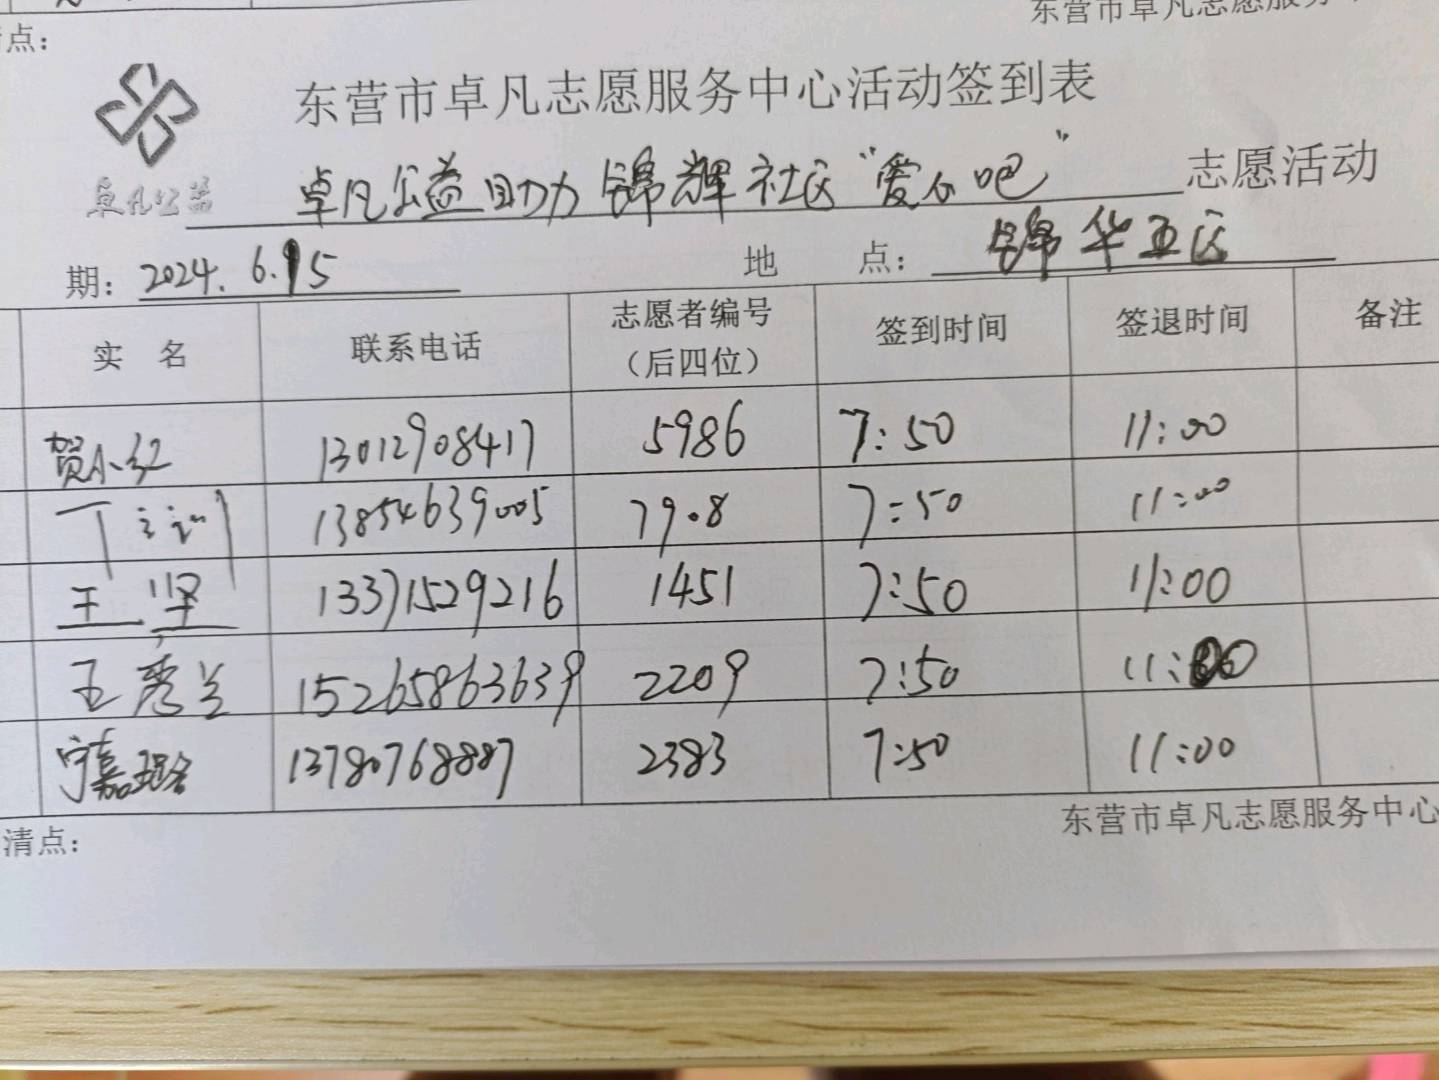 东营市卓凡志愿服务
清点：
东营市卓凡志愿服务中心活动签到表
卓凡公益
卓凡公益助力锦辉社区“爱心吧” 志愿活动
期：2024.6.15 地 点：锦华五区
实 名 联系电话 志愿者编号（后四位） 签到时间 签退时间 备注
贺小红 13012908417 5986 7:50 11:00
丁 13854639005 7908 7:50 11:00
王坚 13371529216 1451 7:50 11:00
王秀兰 15265863639 2209 7:50 11:00
宁嘉 13780768887 2383 7:50 11:00
清点： 东营市卓凡志愿服务中心